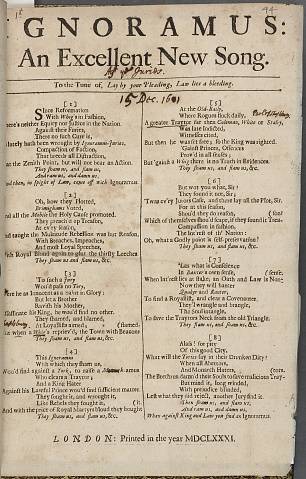 GNORAMUS:
An Excellent New Song.
To the Tune of, Lay by your Pleading, Law lies a bleeding.
15 Dec. 1681
[1]
Since Reformation
With Whig's in Fashion,
There's neither Equity nor Justice in the Nation.
Against their Furies,
There no such Cure is,
As lately hath been wrought by Ignoramus-Juries.
Compaction of Faction,
That breeds all Distraction,
at the Zenith Point, but will not bear an Action.
They sham us, and flam us,
And ram us, and damn us,
And then, in spight of Law, come off with Ignoramus.
[2]
Oh, how they Plotted,
Brimighams Voted,
And all the Mobile the Holy Cause promoted.
They preach'd up Treason,
At ev'ry season,
And taught the Multitude Rebellion was but Reason.
With Breaches, Impeaches,
And most Loyal Speeches,
With Royal Blood again to glut the thirsty Leeches
They sham us, and flam us, &c.
[3]
'Tis such a Jury
Would pass no Tory,
Were he as Innocent as a Saint in Glory;
But let a Brother
Ravish his Mother,
Assassinate his King, he would find no other.
They shamed, and blamed,
At Loyallists aimed,
But when a Whig's repriev'd, the Town with Beacons flamed:
They sham us, and flam us, &c.
[4]
This Ignoramus
With which they sham us,
Would find against a York, to raise a man
Who clears a Traytor,
And a King Hater
Against his Lawful Prince would find sufficient matter.
They sought it, and wrought it,
Like Rebels they fought it,
And with the price of Royal Martyrs blood they bought it.
They sham us, and flam us, &c.
[5]
At the Old-Baily,
Where Rogues flock daily,
A greater Traytor far than Coleman, White or Stafly,
Was late Indicted,
Witnesses cited,
But then he was set free, so the King was righted.
'Gainst Princes, Offences
Prov'd in all senses;
But 'gainst a Whig there is no Truth in Evidences.
They sham us, and flam us, &c.
[6]
But wot you what, Sir?
They found it not, Sir;
'Twas ev'ry Jurors Case, and there lay all the Plot, Sir.
For at this season,
Should they do reason,
Which of themselves should scape, if they found it Treason?
Compassion in fashion,
The Int'rest of th' Nation:
Oh, what a Godly point is self-preservation!
They sham us, and flam us, &c.
[7]
'Las what is Conscience
In Baxter's own sense,
When Int'rest lies at stake, an Oath and Law is Nonsense
Now they will banter
Quaker and Ranter,
To find a Loyallist, and clear a Covenanter.
They'l wrangle and brangle,
The Soul intangle,
To save the Traytors Neck from the old Triangle.
They sham us, and flam us, &c.
[8]
Alas! for pity
Of this good City,
What will the Tories say in their Drunken Ditty?
When all Abettors,
And Monarch Haters,
The Brethren damn'd their Souls to save malicious Traytors.
But mind it, long winded,
With prejudice blinded,
Lest what they did reject, another Jury find it.
Then sham us, and flam us,
And ram us, and damn us,
When against King and Law you find an Ignoramus.
LONDON: Printed in the year MDCLXXXI.